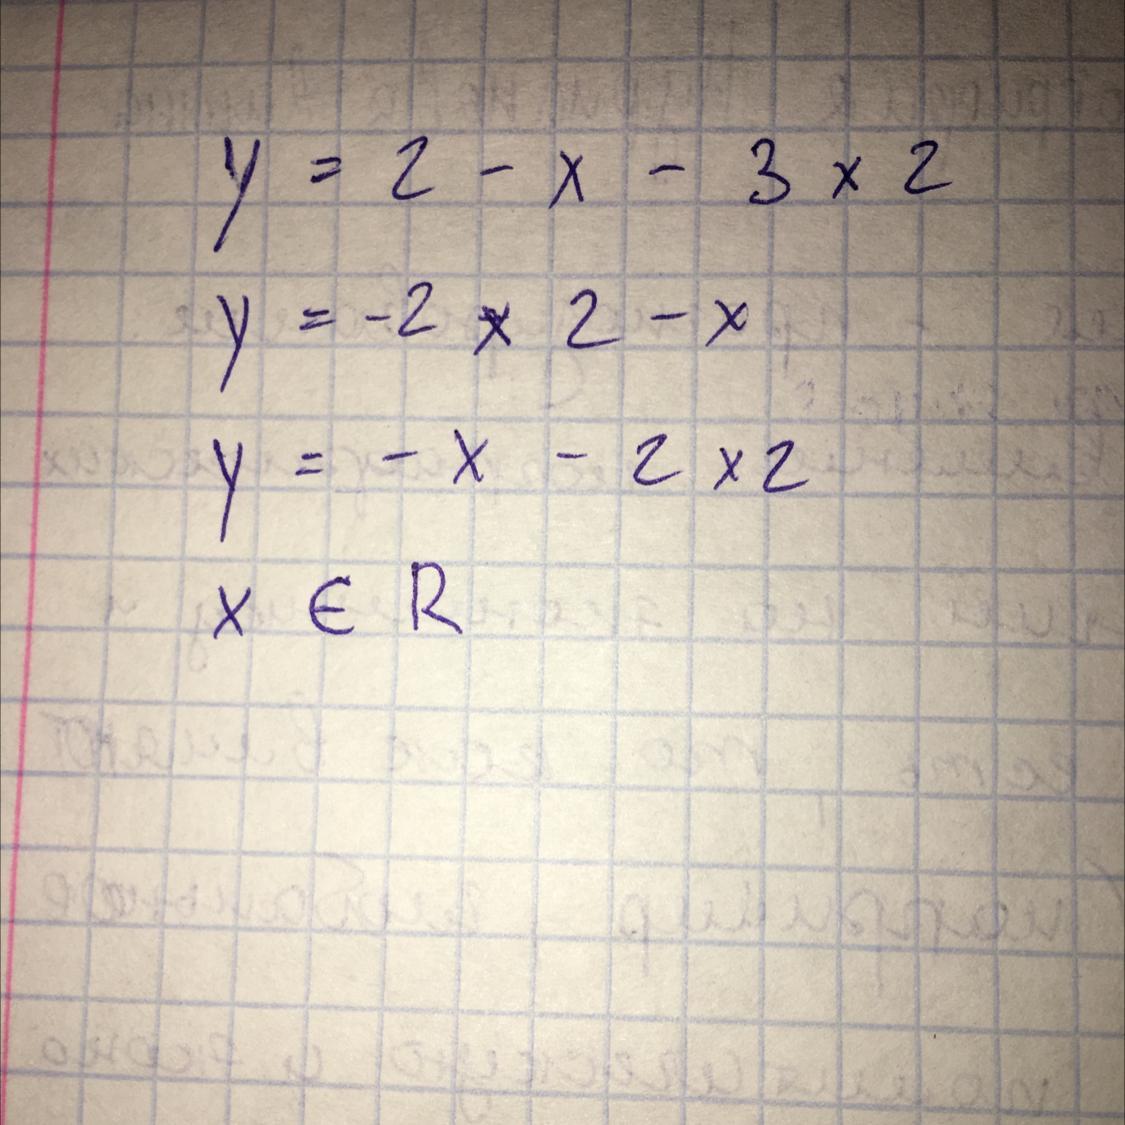 y = 2 - x - 3 x 2
y = -2 x 2 - x
y = - x - 2 x 2
x ∈ R